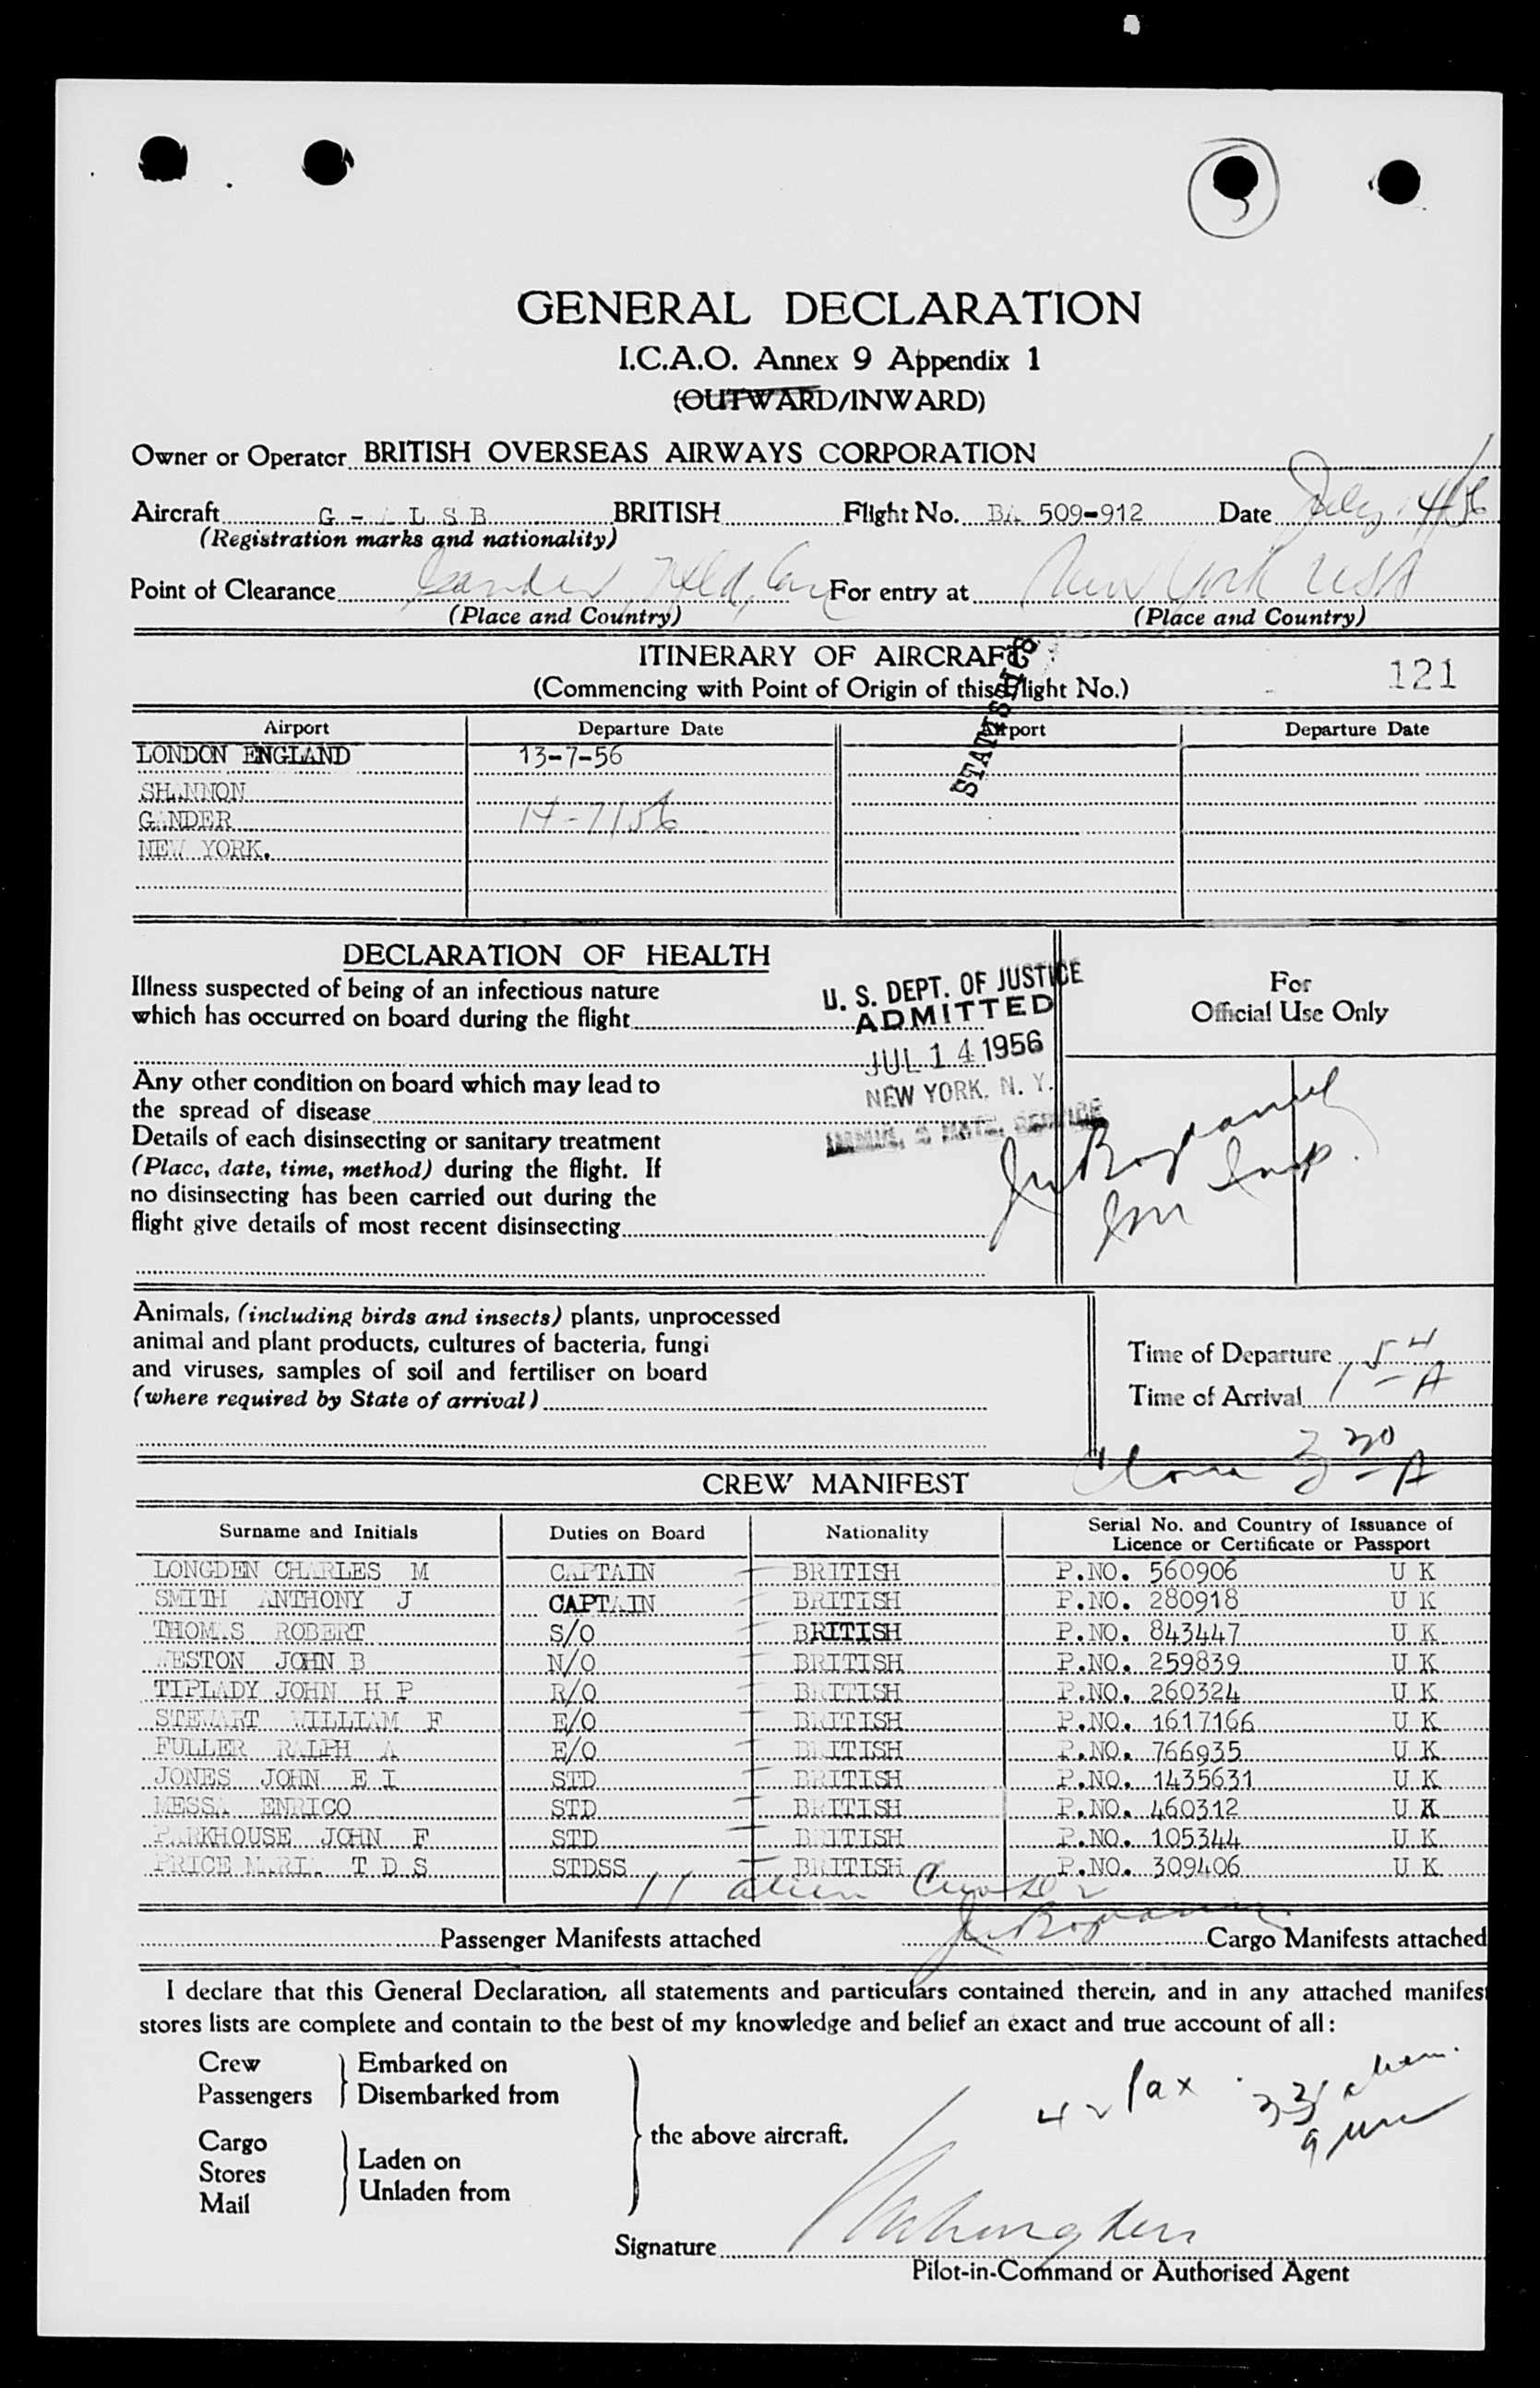 GENERAL DECLARATION
I.C.A.O. Annex 9 Appendix 1
(OUTWARD/INWARD)
Owner or Operator BRITISH OVERSEAS AIRWAYS CORPORATION
Aircraft G - A L S B BRITISH Flight No. BA 509-912 Date July 14/56
(Registration marks and nationality)
Point of Clearance Gander, Nfld, Can For entry at New York USA
(Place and Country) (Place and Country)
ITINERARY OF AIRCRAFT
(Commencing with Point of Origin of this Flight No.) 121
STATISTICS
Airport Departure Date Airport Departure Date
LONDON ENGLAND 13-7-56
SHANNON
GANDER 14-7/56
NEW YORK.
DECLARATION OF HEALTH
Illness suspected of being of an infectious nature
which has occurred on board during the flight
Any other condition on board which may lead to
the spread of disease
Details of each disinsecting or sanitary treatment
(Place, date, time, method) during the flight. If
no disinsecting has been carried out during the
flight give details of most recent disinsecting
U. S. DEPT. OF JUSTICE
ADMITTED
JUL 14 1956
NEW YORK, N. Y.
IMMIG. & NATZ. SERVICE
For
Official Use Only
Im Insp.
Animals, (including birds and insects) plants, unprocessed
animal and plant products, cultures of bacteria, fungi
and viruses, samples of soil and fertiliser on board
(where required by State of arrival)
Time of Departure
Time of Arrival 1 54 A
3 30 A
CREW MANIFEST
Surname and Initials Duties on Board Nationality Serial No. and Country of Issuance of
Licence or Certificate or Passport
LONGDEN CHARLES M CAPTAIN BRITISH P.NO. 560906 U K
SMITH ANTHONY J CAPTAIN BRITISH P.NO. 280918 U K
THOMAS ROBERT S/O BRITISH P.NO. 843447 U K
WESTON JOHN B N/O BRITISH P.NO. 259839 U K
TIPLADY JOHN H P R/O BRITISH P.NO. 260324 U K
STEWART WILLIAM F E/O BRITISH P.NO. 1617166 U K
FULLER RALPH A E/O BRITISH P.NO. 766935 U K
JONES JOHN E I STD BRITISH P.NO. 1435631 U K
MESSA ENRICO STD BRITISH P.NO. 460312 U K
PARKHOUSE JOHN F STD BRITISH P.NO. 105344 U K
PRICE MARIA T D S STDSS BRITISH P.NO. 309406 U K
11 alien Crew
Passenger Manifests attached Cargo Manifests attached
I declare that this General Declaration, all statements and particulars contained therein, and in any attached manifes
stores lists are complete and contain to the best of my knowledge and belief an exact and true account of all:
Crew
Passengers
Embarked on
Disembarked from
Cargo
Stores
Mail
Laden on
Unladen from
the above aircraft.
42 Pax 33 alien
9 usc
Signature
Pilot-in-Command or Authorised Agent